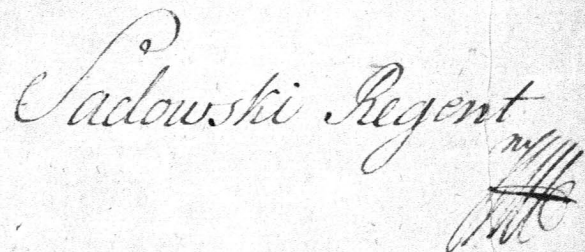 Sadowski Regent
mp